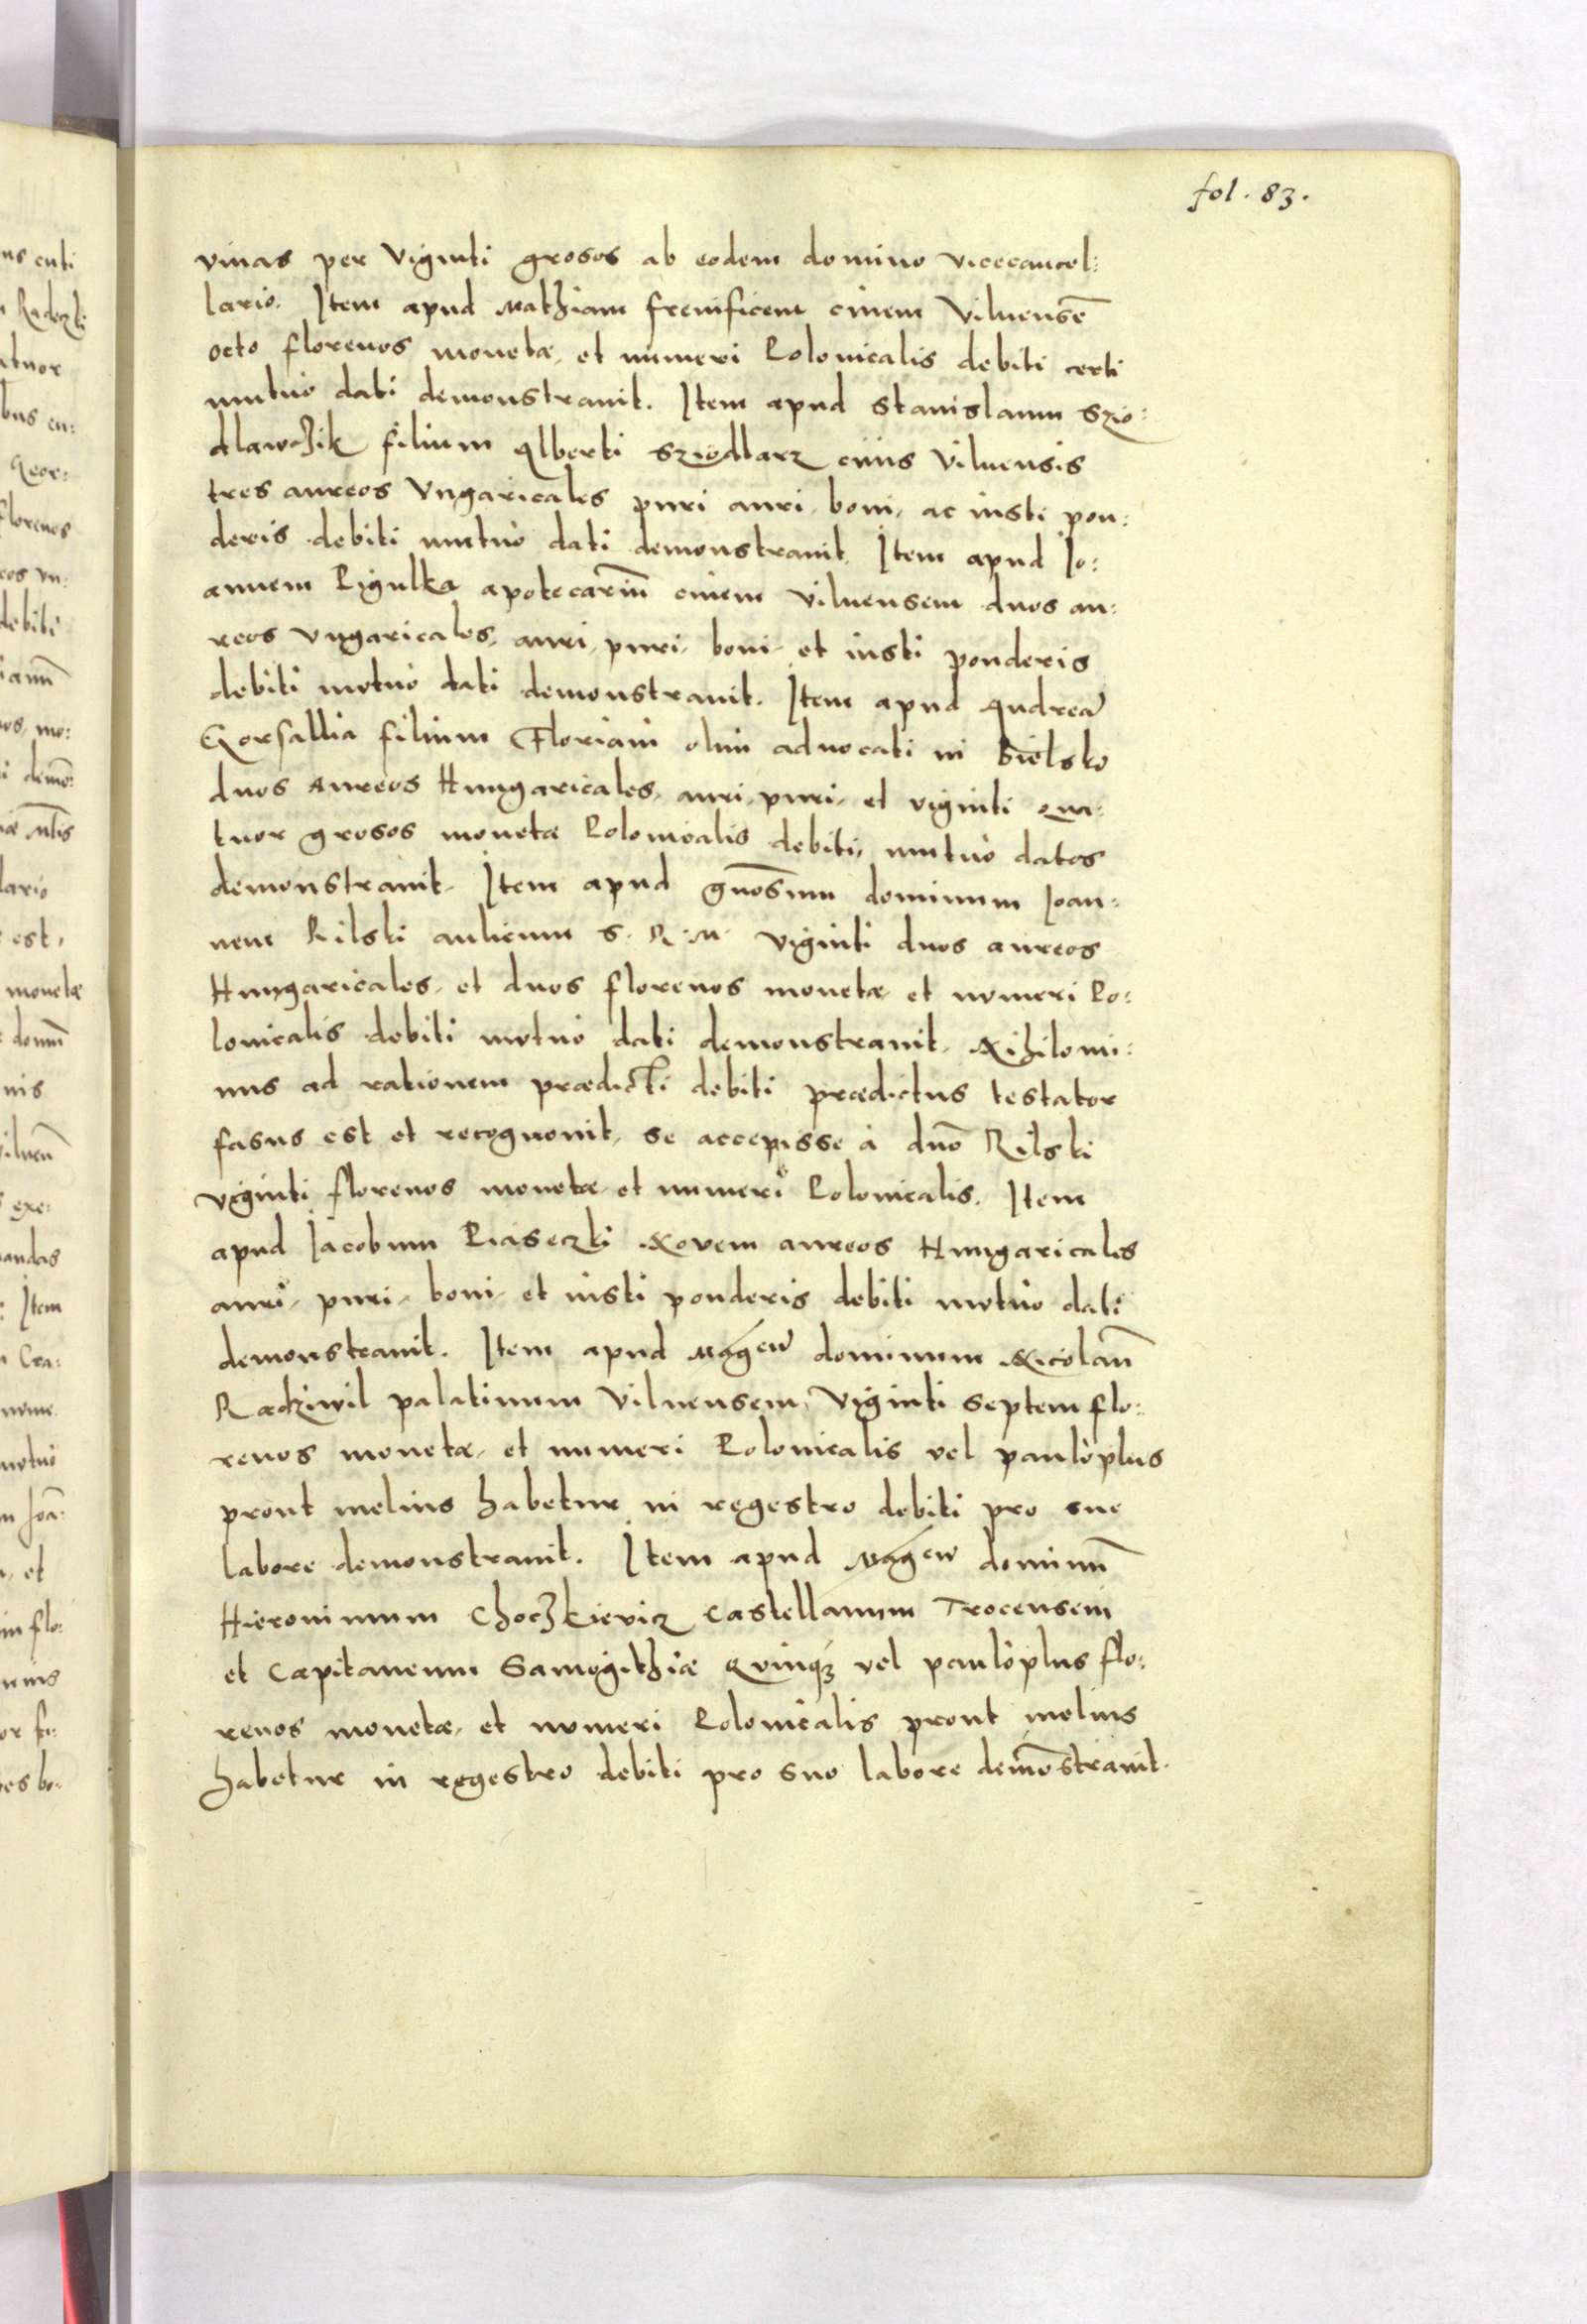 fol. 83.
vinas per viginti grosos ab eodem domino vicecancel:
lario. Item apud Mathiam frenificem ciuem Vilnensē
octo florenos monetæ, et numeri Polonicalis debiti certi
mutuò dati demonstrauit. Item apud Stanislaum Szio:
dlawcʒik filium Alberti Sziodlarz ciuis Vilnensis
tres aureos Vngaricales puri auri, boni, ac iusti pon:
deris debiti mutuò dati demonstrauit. Item apud Jo:
annem Pigulka apotecariū ciuem Vilnensem duos au:
reos Vngaricales, auri, puri, boni, et iusti ponderis
debiti mutuò dati demonstrauit. Item apud Andreā
Korsallia filium Floriani olim aduocati in Bielsko
duos Aureos Hungaricales, auri, puri, et viginti qua:
tuor grosos monetæ Polonicalis debiti, mutuò datos
demonstrauit. Item apud gnōsum dominum Joan:
nem Rilski aulicum S. R. M. viginti duos aureos
Hungaricales, et duos florenos monetæ, et numeri Po:
lonicalis debiti mutuò dati demonstrauit, Nihilomi:
nus ad rationem prædicti debiti prædictus testator
fasus est et recognouit, se accepisse à dnō Rilski
viginti florenos monetæ et numeri Polonicalis. Item
apud Jacobum Piaseczki Novem aureos Hungaricales
auri, puri, boni, et iusti ponderis debiti mutuò dati
demonstrauit. Item apud Magcū dominum Nicolaū
Radziwil palatinum Vilnensem, Viginti septem flo:
renos monetæ, et numeri Polonicalis vel paulòplus
prout melius habetur in regestro debiti pro suo
labore demonstrauit. Item apud Magcū dominū
Hieronimum Chocʒkievicz Castellanum Trocensem
et Capitaneum Samogithiæ Qvinqꝫ vel paulòplus flo:
renos monetæ, et numeri Polonicalis prout melius
habetur in regestro debiti pro suo labore demōstrauit.